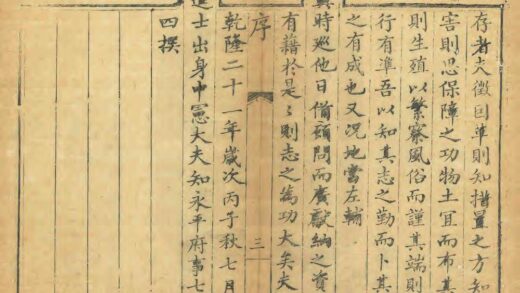 存者夫徵因準則知措置之方知
害則思保障之功物土宜而布其
則生殖以繁察風俗而謹其端則
行有準吾以知其志之勤而卜其
之有成也又况地當左輔
時巡他日備顧問而廣獻納之資
有藉於是〻則志之為功大矣夫
序 三
乾隆二十一年歲次丙子秋七月
進士出身中憲大夫知永平府事七
四撰